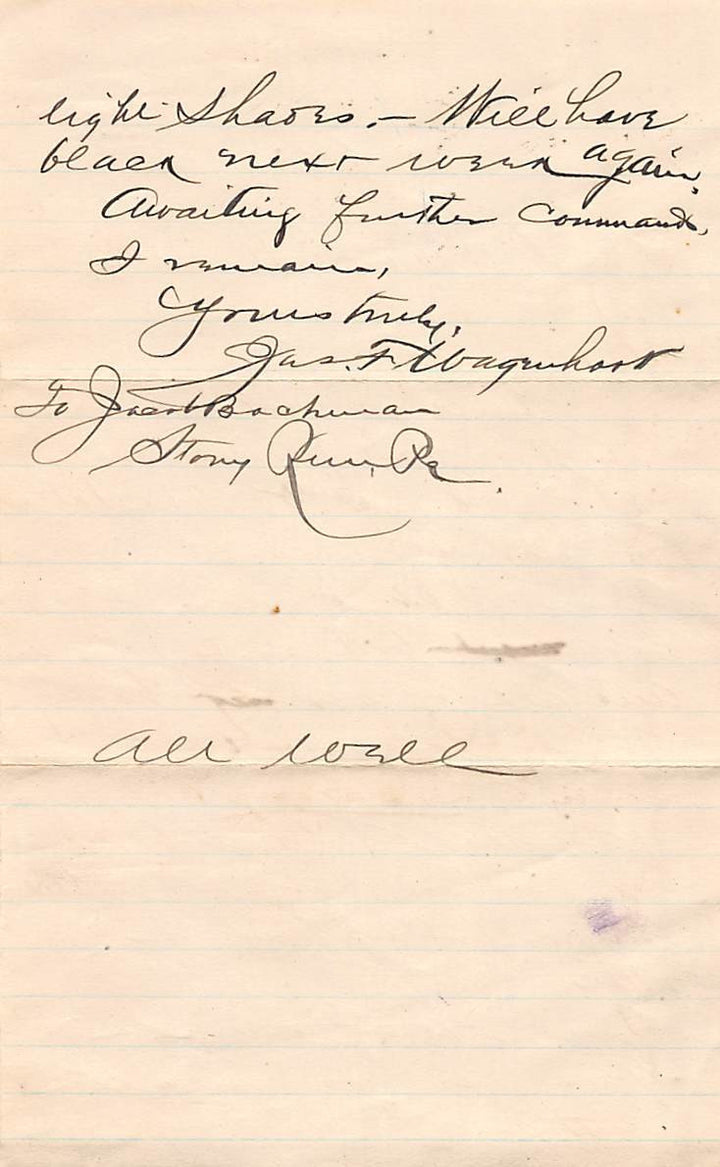 light shades. – Will have
black next week again.
Awaiting further commands,
I remain,
Yours truly,
Jas. F. Wagenhorst
To Jacob Bachman
Stony Run, Pa.
All well